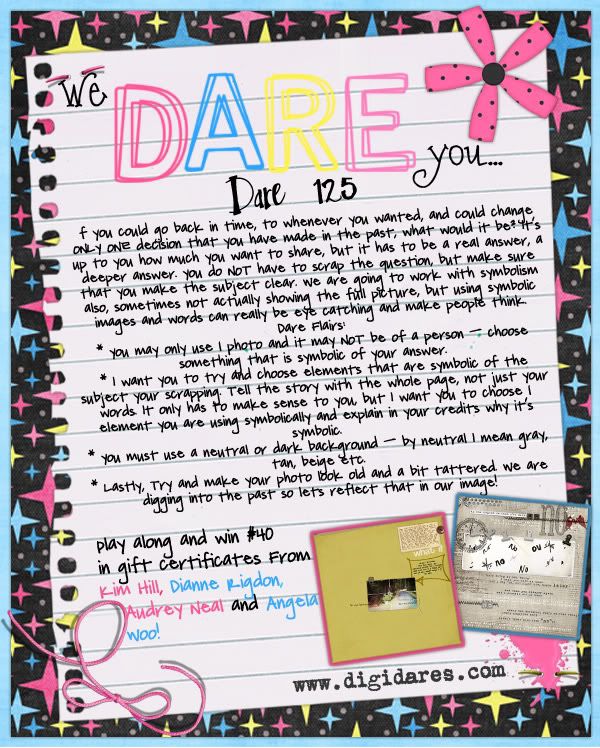 We
DARE
you...
Dare 125
f you could go back in time, to whenever you wanted, and could change
ONLY ONE decision that you have made in the past, what would it be? It's
up to you how much you want to share, but it has to be a real answer, a
deeper answer. you do NOT have to scrap the question, but make sure
that you make the subject clear. we are going to work with symbolism
also, sometimes not actually showing the full picture, but using symbolic
images and words can really be eye catching and make people think.
Dare Flairs:
* you may only use 1 photo and it may NOT be of a person — choose
something that is symbolic of your answer.
* I want you to try and choose elements that are symbolic of the
subject your scrapping. Tell the story with the whole page, not just your
words. It only has to make sense to you, but I want you to choose 1
element you are using symbolically and explain in your credits why it's
symbolic.
* you must use a neutral or dark background — by neutral I mean gray,
tan, beige etc.
* Lastly, Try and make your photo look old and a bit tattered. we are
digging into the past so lets reflect that in our image!
play along and win $40
in gift certificates From
Kim Hill, Dianne Rigdon,
Audrey Neal and Angela
Woo!
what if
no
No
www.digidares.com